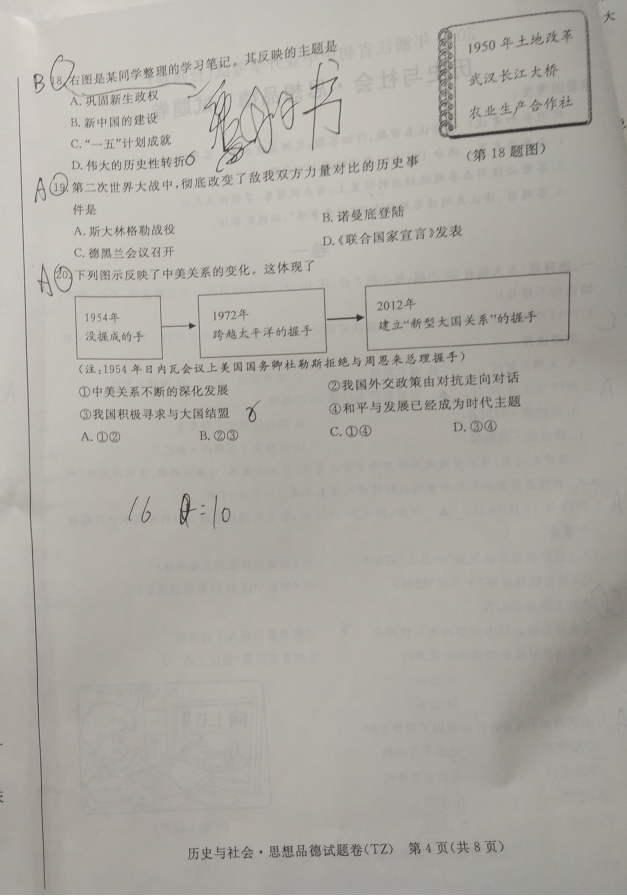 B 18.右图是某同学整理的学习笔记。其反映的主题是
A.巩固新生政权
B.新中国的建设
C.“一五”计划成就
D.伟大的历史性转折
1950年土地改革
武汉长江大桥
农业生产合作社
(第18题图)
A 19.第二次世界大战中,彻底改变了敌我双方力量对比的历史事
件是
A.斯大林格勒战役
B.诺曼底登陆
C.德黑兰会议召开
D.《联合国家宣言》发表
A 20.下列图示反映了中美关系的变化。这体现了
1954年
没握成的手
1972年
跨越太平洋的握手
2012年
建立“新型大国关系”的握手
(注:1954年日内瓦会议上美国国务卿杜勒斯拒绝与周恩来总理握手)
①中美关系不断的深化发展
②我国外交政策由对抗走向对话
③我国积极寻求与大国结盟
④和平与发展已经成为时代主题
A.①②
B.②③
C.①④
D.③④
16
=10
历史与社会·思想品德试题卷(TZ) 第4页(共8页)
大